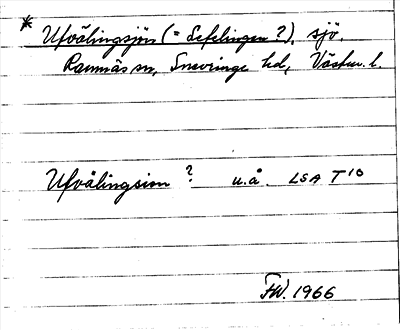 * Ufvälingsjön (= Lefelingen?), sjö,
Ramnäs sn, Snevringe hd, Västm. l.
Ufvälingsion ? u.å. LSA T¹⁰
FW. 1966